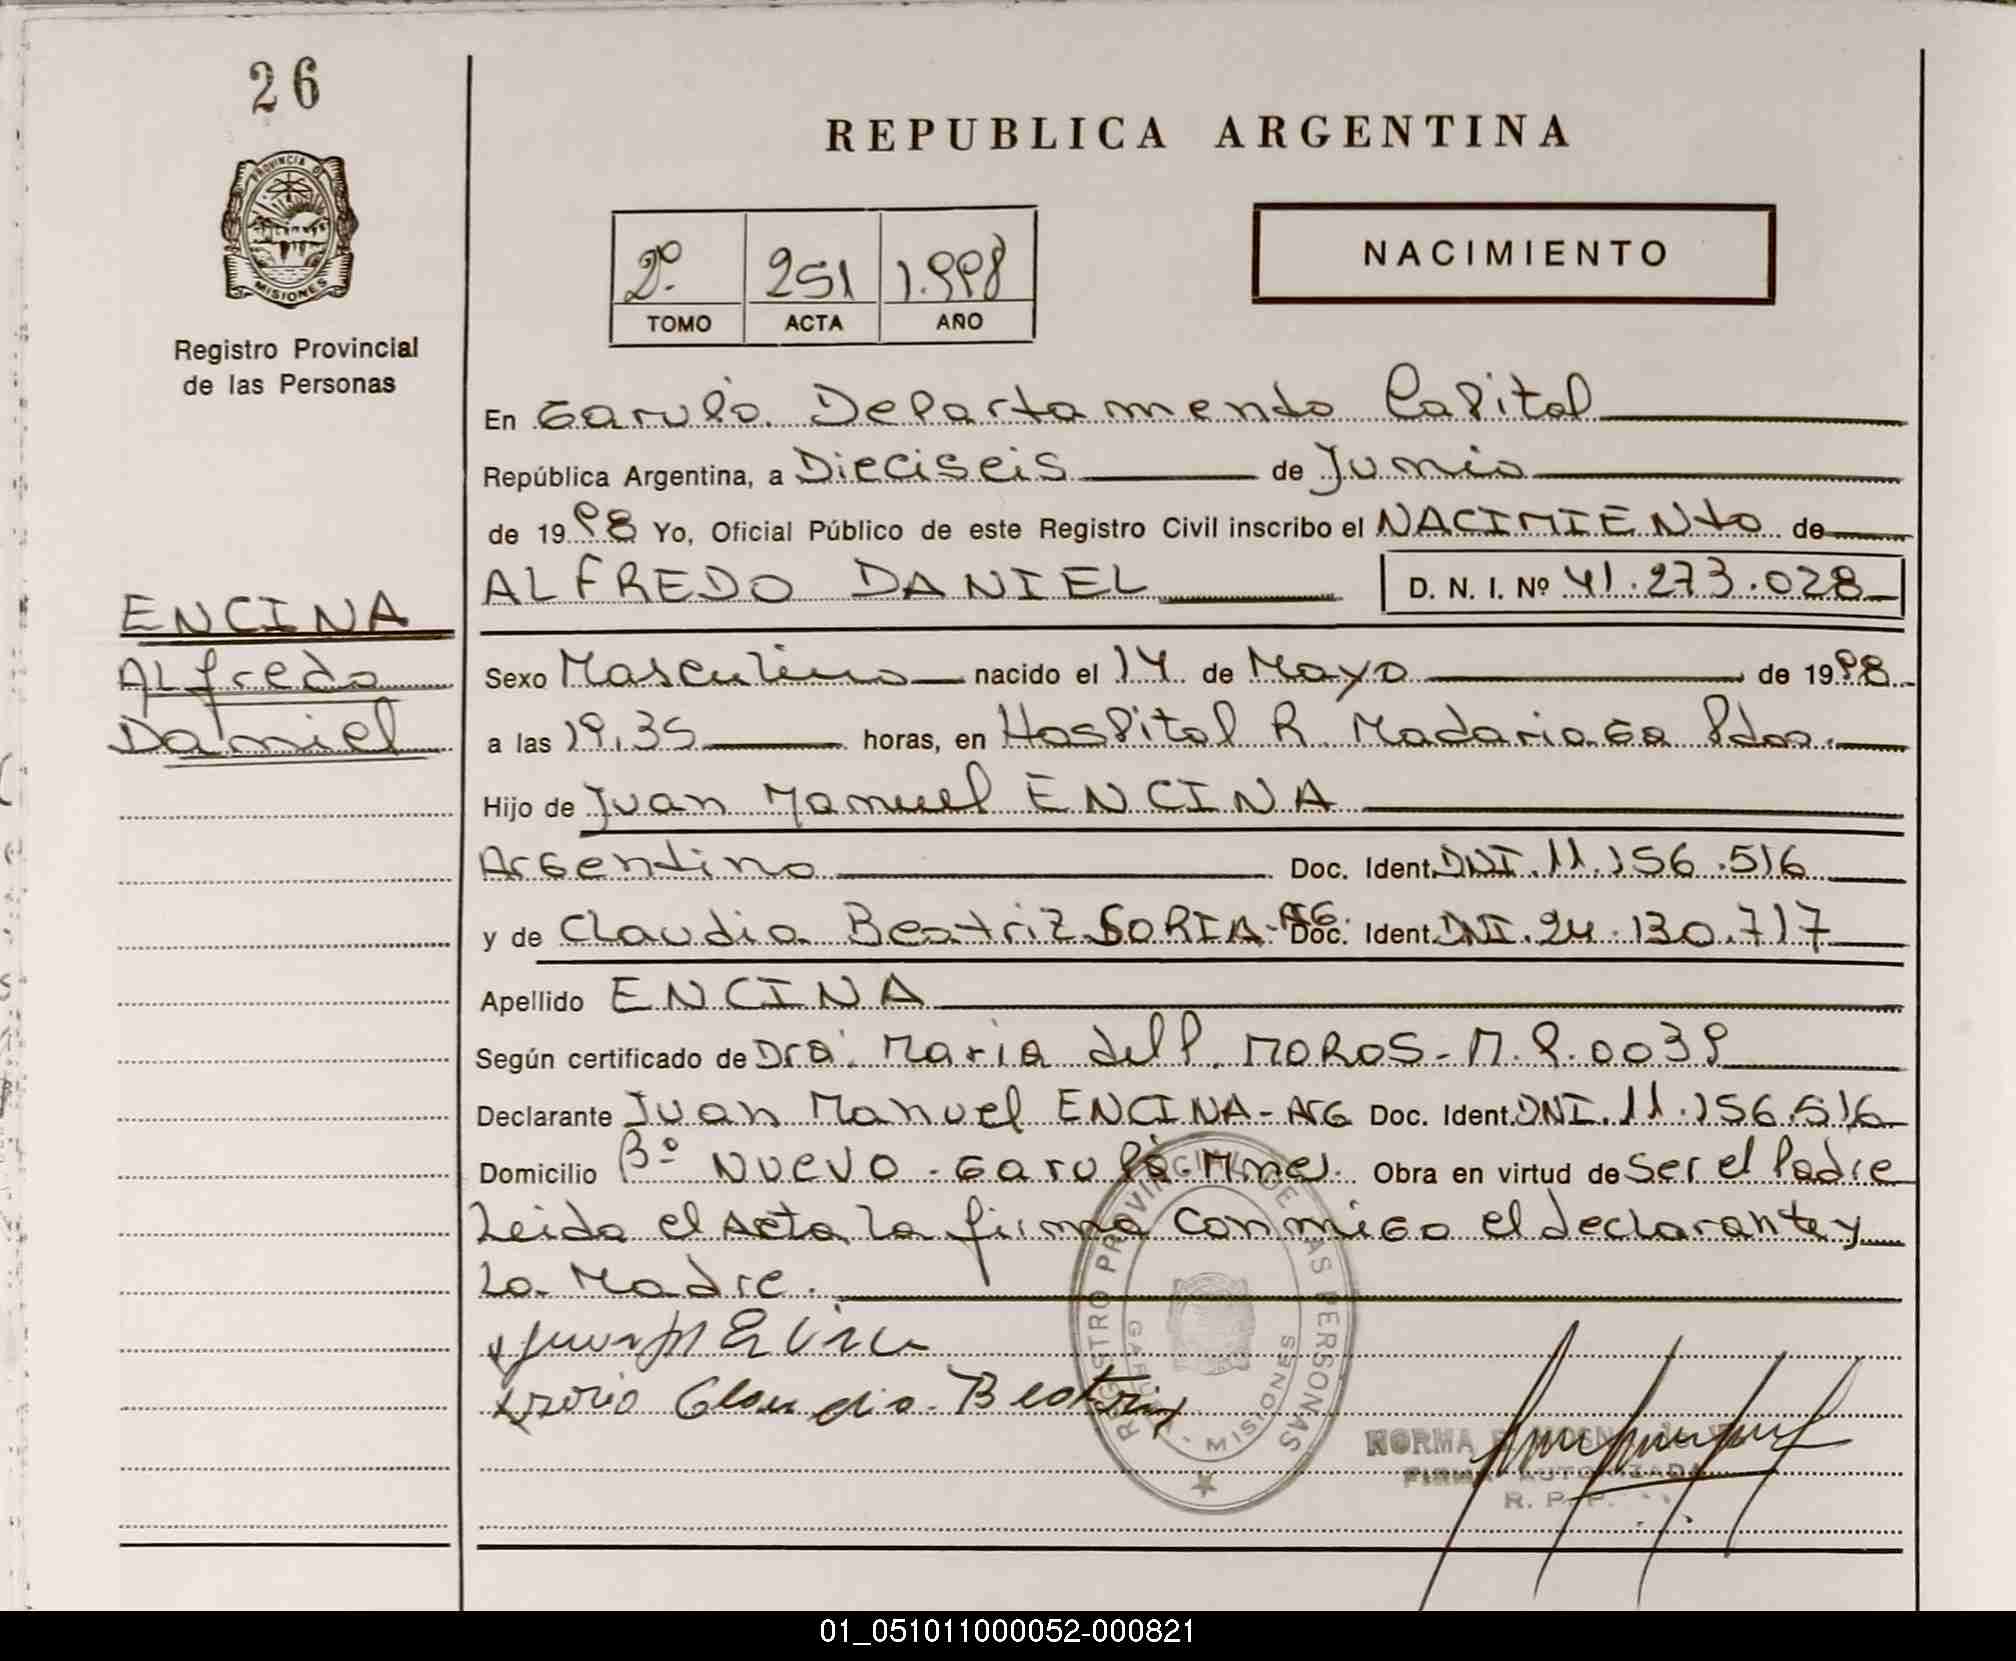 26
REPUBLICA ARGENTINA
PROVINCIA DE
MISIONES
NACIMIENTO
2º 251 1.998
TOMO ACTA AÑO
Registro Provincial
de las Personas
En Garupá. Departamento Capital
República Argentina, a Dieciseis de Junio
de 1998 Yo, Oficial Público de este Registro Civil inscribo el NACIMIENto de
ALFREDO DANIEL D. N. I. Nº 41.273.028
ENCINA
ALfredo
Daniel
Sexo Masculino nacido el 14 de Mayo de 1998
a las 19,35 horas, en Hospital R. Madariaga Pdas.
Hijo de Juan Manuel ENCINA
Argentino Doc. Ident. DNI.11.156.516
y de Claudia Beatriz SORIA-ARG. Doc. Ident. DNI.24.130.717
Apellido ENCINA
Según certificado de Dra. Maria del P. MOROS-M.P.0039
Declarante Juan Manuel ENCINA-ARG Doc. Ident. DNI.11.156.516
Domicilio Bº NUEVO-Garupá-Mnes. Obra en virtud de Ser el Padre
Leida el Acta La firma conmigo el declarante y
La Madre.
Soria Claudia Beatriz
REGISTRO PROVINCIAL DE LAS PERSONAS
GARUPA
MISIONES
NORMA
FIRMA AUTORIZADA
R. P. P.
01_051011000052-000821